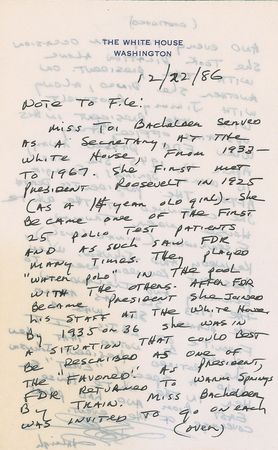 THE WHITE HOUSE
WASHINGTON
12/22/86
NOTE TO FILE:
MISS TOI BACHELDER SERVED
AS A SECRETARY, AT THE
WHITE HOUSE, FROM 1933-
TO 1967. SHE FIRST MET
PRESIDENT ROOSEVELT IN 1925
(AS A 14 YEAR OLD GIRL). SHE
BECAME ONE OF THE FIRST
25 POLIO TEST PATIENTS
AND AS SUCH SAW FDR
MANY TIMES. THEY PLAYED
"WATER POLO" IN THE POOL
WITH THE OTHERS. AFTER FDR
BECAME PRESIDENT SHE JOINED
HIS STAFF AT THE WHITE HOUSE
BY 1935 OR 36 SHE WAS IN
A SITUATION THAT COULD BEST
BE "DESCRIBED AS ONE OF
THE "FAVORED". AS PRESIDENT,
FDR RETURNED TO WARM SPRINGS
BY TRAIN. MISS BACHELDER
WAS INVITED TO GO ON EACH
(OVER)